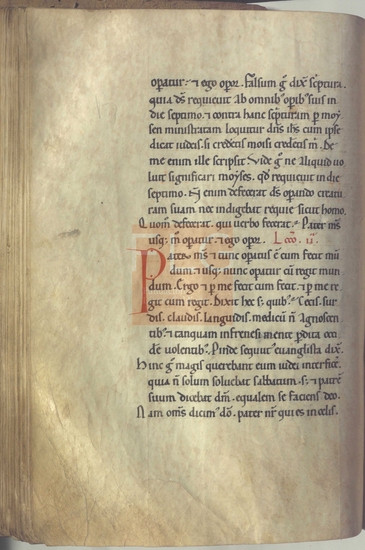 operatur. ⁊ ego operor. Falsum g̃ dixit scriptura.
quia ds̄ requieuit ab omnibꝰ opibꝰ suis in
die septimo. ⁊ contra hanc scripturam ꝑ moy
sen ministratam loquitur dn̄s ihs̄ cum ipse
dicat iudeis. si crederetis moisi crederetis m̄. De
me enim ille scripsit. Vide g̃ ne aliquid uo
luit significari moyses. qd̄ requieuit in die
septimo. Nō enim defecerat ds̄ operando creatu
ram suam nec indigebat requie sicut homo.
Quom̄ defecerat. qui uerbo fecerat. Pater ms̄
usq; m̄ operatur. ⁊ ego opor. Lc̄o. ii.
Pater ms̄ ⁊ tunc operatus ē cum fecit mū
dum. ⁊ usq; nunc operatur cū regit mun
dum. Ergo ⁊ ꝑ me fecit cum fecit. ⁊ ꝑ me re
git cum regit. Dixit hec s; quibꝰ. Cecis. sur
dis. claudis. languidis. medicū n̄ agnoscen
tibꝰ. ⁊ tanquam in frenesi mente perdita occi
de uolentibꝰ. Proinde sequitꝰ euangelista dix̄.
Hinc g̃ magis querebant eum iudei interficē.
quia n̄ solum soluebat sabbatum. s; ⁊ patrē
suum dicebat dm̄. equalem se faciens deo.
Nam oms̄ dicimꝰ dō. pater nr̄ qui es in celis.